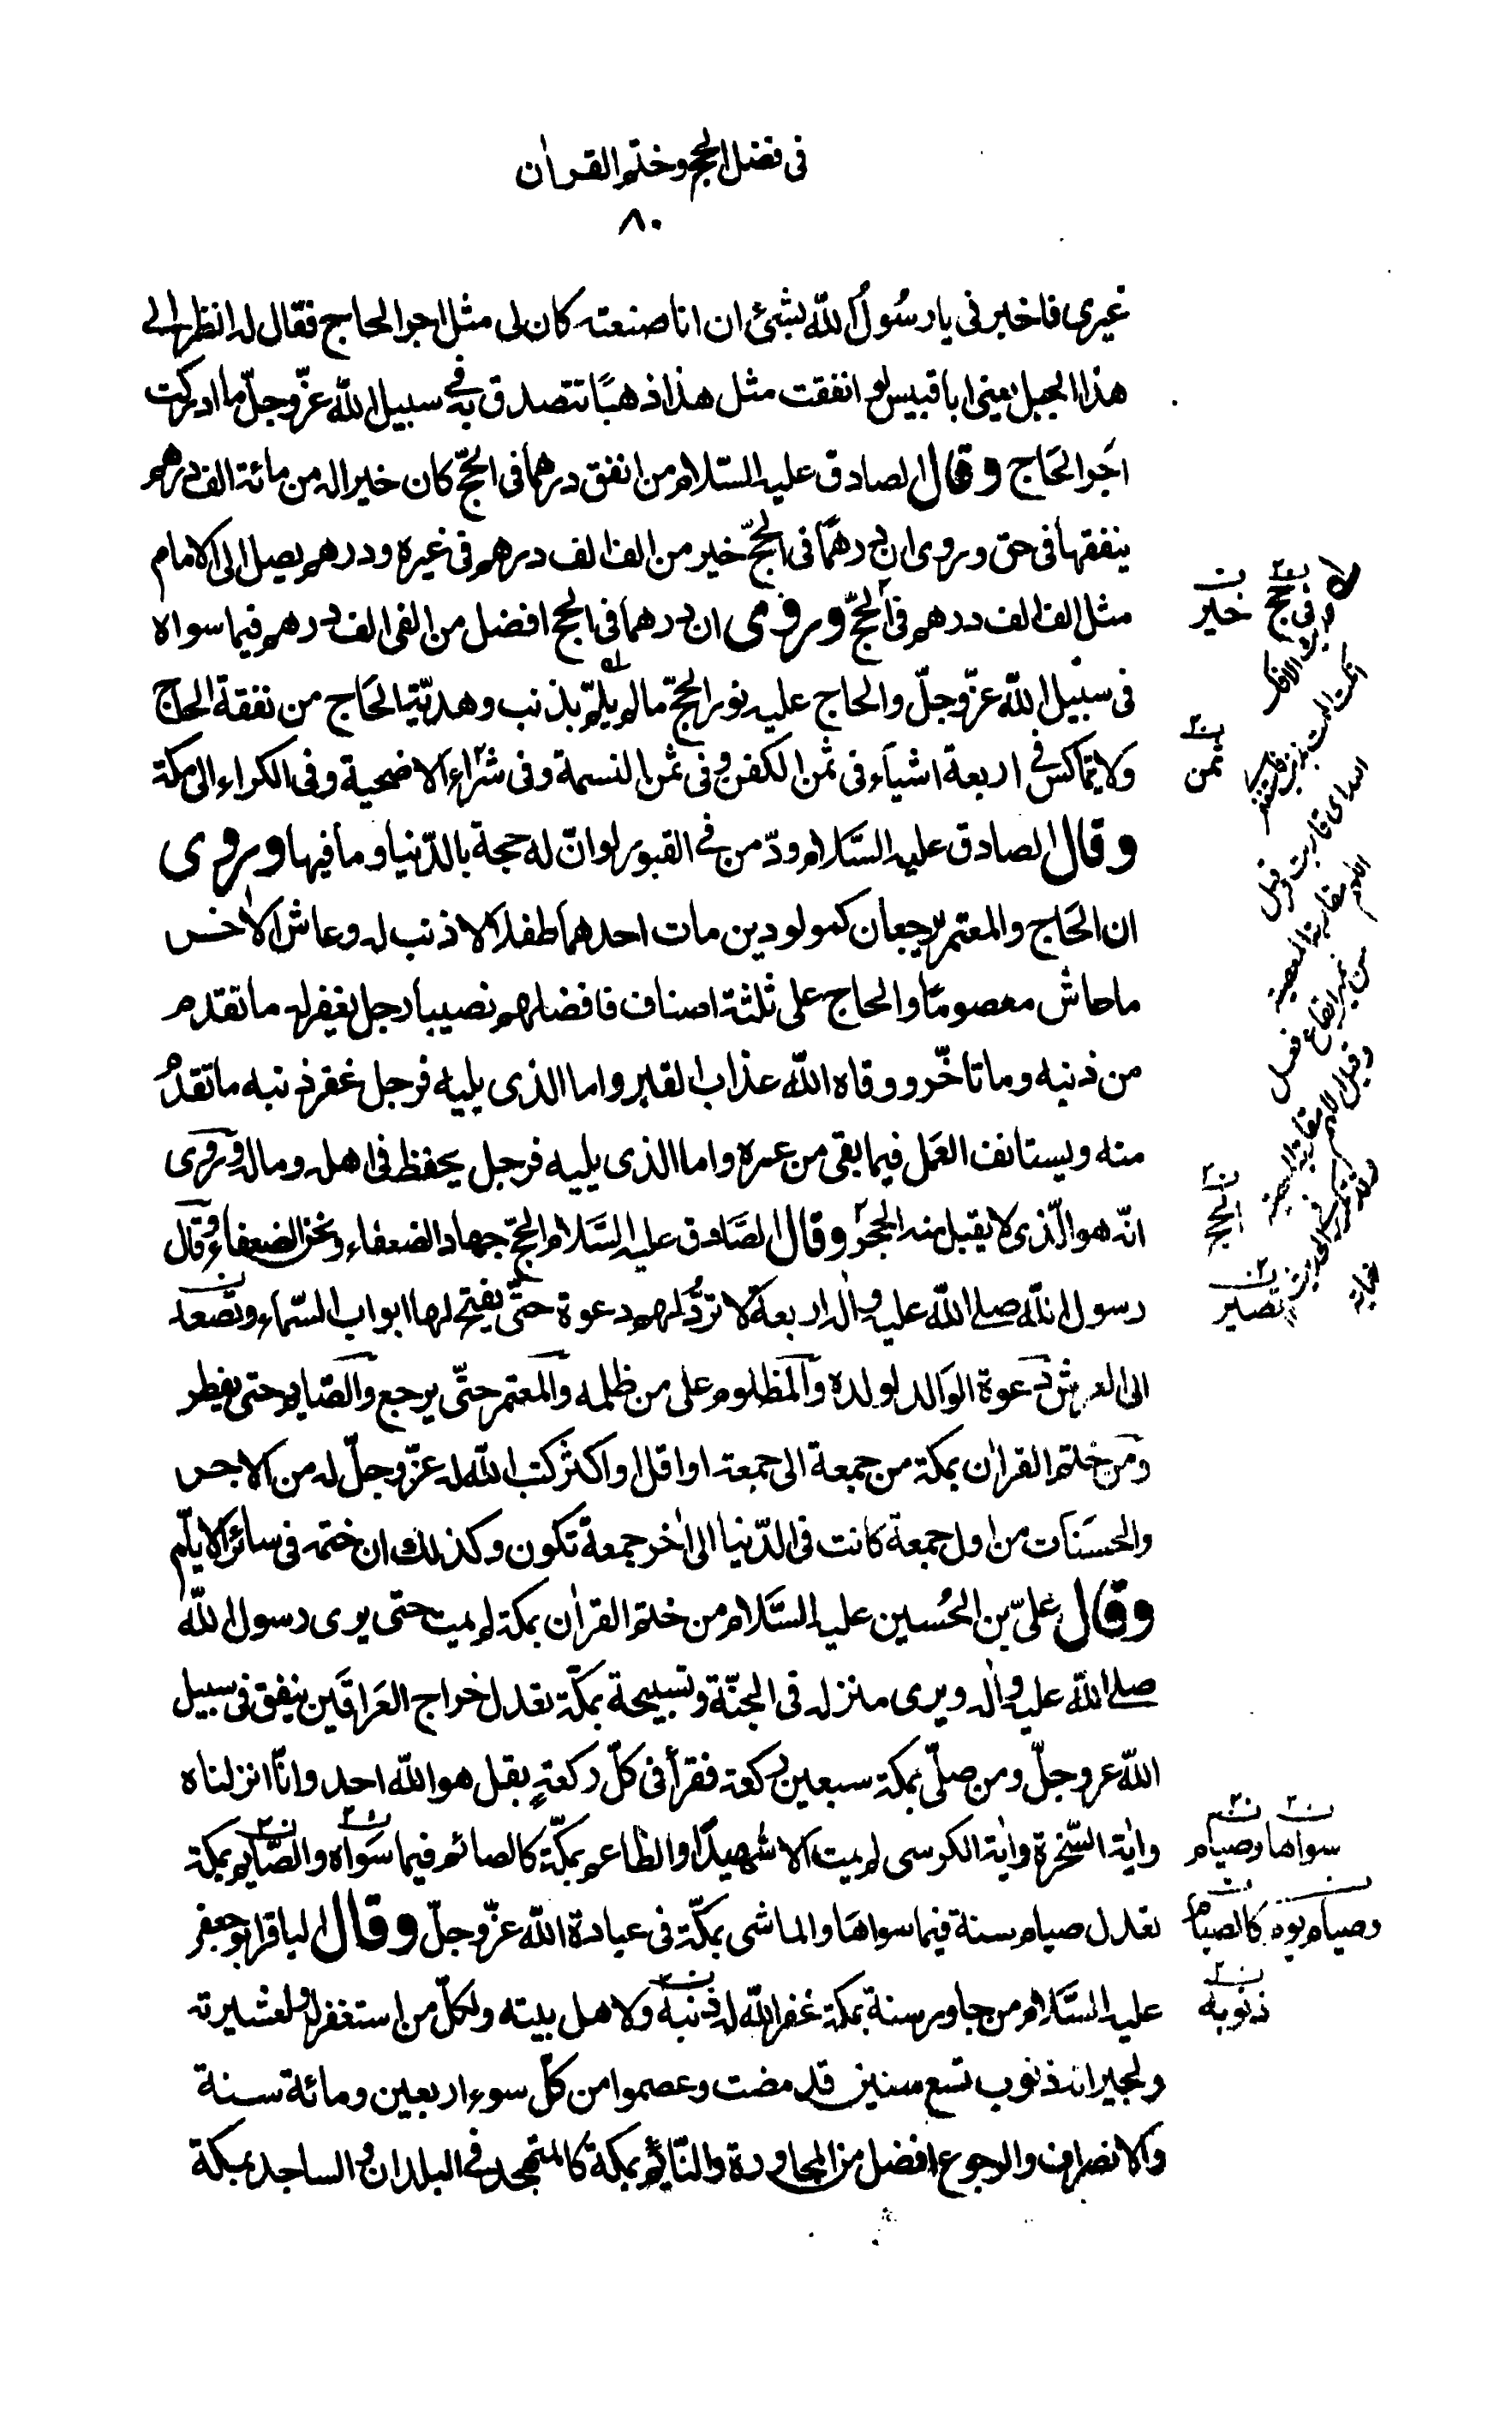 فى فضل الحج وختم القران
٨٠
غيرى فاخبرنى يا رسُول اللّه بشئ ان انا صنعته كان لى مثل اجر الحاج فقال له انظر الى
هذا الجبل يعنى ابا قبيس لو انفقت مثل هذا ذهبًا تتصدق به فى سبيل اللّه عزّ وجلّ ما ادركت
اجر الحَاج وقال الصادق عليه السّلام من انفق درهما فى الحجّ كان خيرا له من مائة الف درهم
ينفقها فى حق وروى ان درهمًا فى الحجّ خير من الف الف درهم فى غيره ودرهم يصل الى الامام
مثل الف الف درهم فى الحجّ وروى ان درهما فى الحج افضل من الفى الف درهم فيما سواه
فى سبيل اللّه عزّ وجلّ والحاج عليه نور الحجّ ما لم يلمّ بذنب وهديّة الحَاج من نفقة الحاج
ولا تماكس فى اربعة اشياَء فى ثمن الكفن وفى ثمن النسمة وفى شراء الاضحية وفى الكراء الى مكة
وقال الصادق عليه السَّلام ودّ من فى القبور لو انّ له حجة بالدّنيا وما فيها وروى
ان الحَاج والمعتمر يرجعان كمولودين مات احدهما طفلا لا ذنب له وعاش الاخر
ما عاش معصومًا والحاج على ثلثة اصناف فافضلهم نصيبا رجل يغفر له ما تقدم
من ذنبه وما تاخّر ووقاه اللّه عذاب القبر واما الذى يليه فرجل غفر ذنبه ما تقدم
منه ويستانف العَمل فيما بقى من عمره واما الذى يليه فرجل يحفظ فى اهله وماله وروى
انّه هو الّذى لا يقبل منه الحجّ وقال الصَّادق عليه السَّلام الحجّ جهاد الضعفاء ونحن الضعفاء وقال
رسول اللّه صلى اللّه عليه واله اربعة لا تردُّ لهم دعوة حتّى يفتح لها ابواب السّماء وتصعد
الى العرش دعوة الوالد لولده والمظلوم على من ظلمه والمعتمر حتّى يرجع والصّايم حتى يفطر
ومن ختم القران بمكة من جمعة الى جمعة او اقل او اكثر كتب اللّه له عزّ وجلّ له من الاجر
والحسَنات من اول جمعة كانت فى الدّنيا الى اخر جمعة تكون وكذلك ان ختمه فى سائر الايّام
وقال علىّ بن الحُسين عليه السَّلام من ختم القران بمكة لم يمت حتى يرى رسول اللّه
صلى اللّه عليه واله ويرى منزله فى الجنّة وتسبيحة بمكّة تعدل خراج العَراقَين ينفق فى سبيل
اللّه عز وجلّ ومن صلّى بمكة سبعين ركعة فقرأ فى كلّ ركعةٍ بقل هو اللّه احد وانّا انزلناه
واية السّخرة واية الكرسى لم يمت الا شهيدًا والطاعم بمكّة كالصائم فيما سَواه والصّايم بمكة
تعدل صيام سنة فيما سواهَا والماشى بمكّة فى عبادة اللّه عزّ وجلّ وقال الباقر ابو جعفر
عليه السَّلام من جاور سنة بمكة غفر اللّه له ذنبه ولاهل بيته ولكلّ من استغفر له ولعشيرته
ولجيرانه ذنوب تسع سنين قد مضت وعصموا من كلّ سوء اربعين ومائة سنة
والانصراف والرجوع افضل من المجاورة والنّائم بمكة كالمتهجد فى البلدان والساجد بمكة
وفى حج خير
ثمن
الحج
تصير
سواها وصيام
وصيام يوم كالصيام
ذنوبه